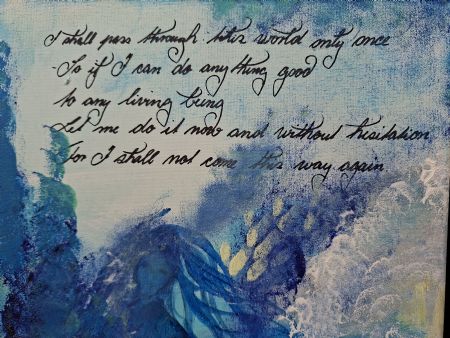 I shall pass through this world only once
So if I can do anything good
to any living being
Let me do it now and without hesitation
For I shall not come this way again